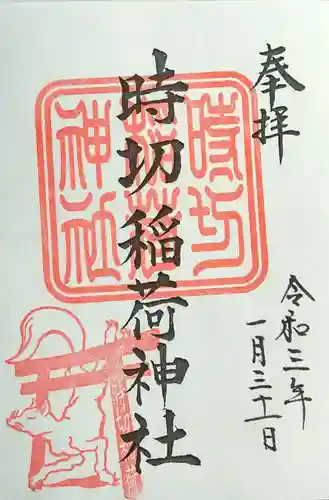 奉拝
時切稲荷神社
令和三年
一月三十一日
時切
稲荷
神社